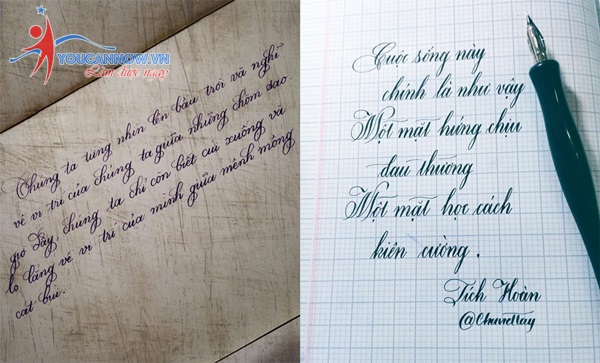 YOUCANNOW.VN
Làm được ngay
Chúng ta từng nhìn lên bầu trời và nghĩ
về vị trí của chúng ta giữa những chòm sao.
giờ đây, chúng ta chỉ còn biết cúi xuống và
lo lắng về vị trí của mình giữa mênh mông
cát bụi.
Cuộc sống này
chính là như vậy
Một mặt hứng chịu
đau thương
Một mặt học cách
kiên cường.
Tích Hoàn
@Chuviettay